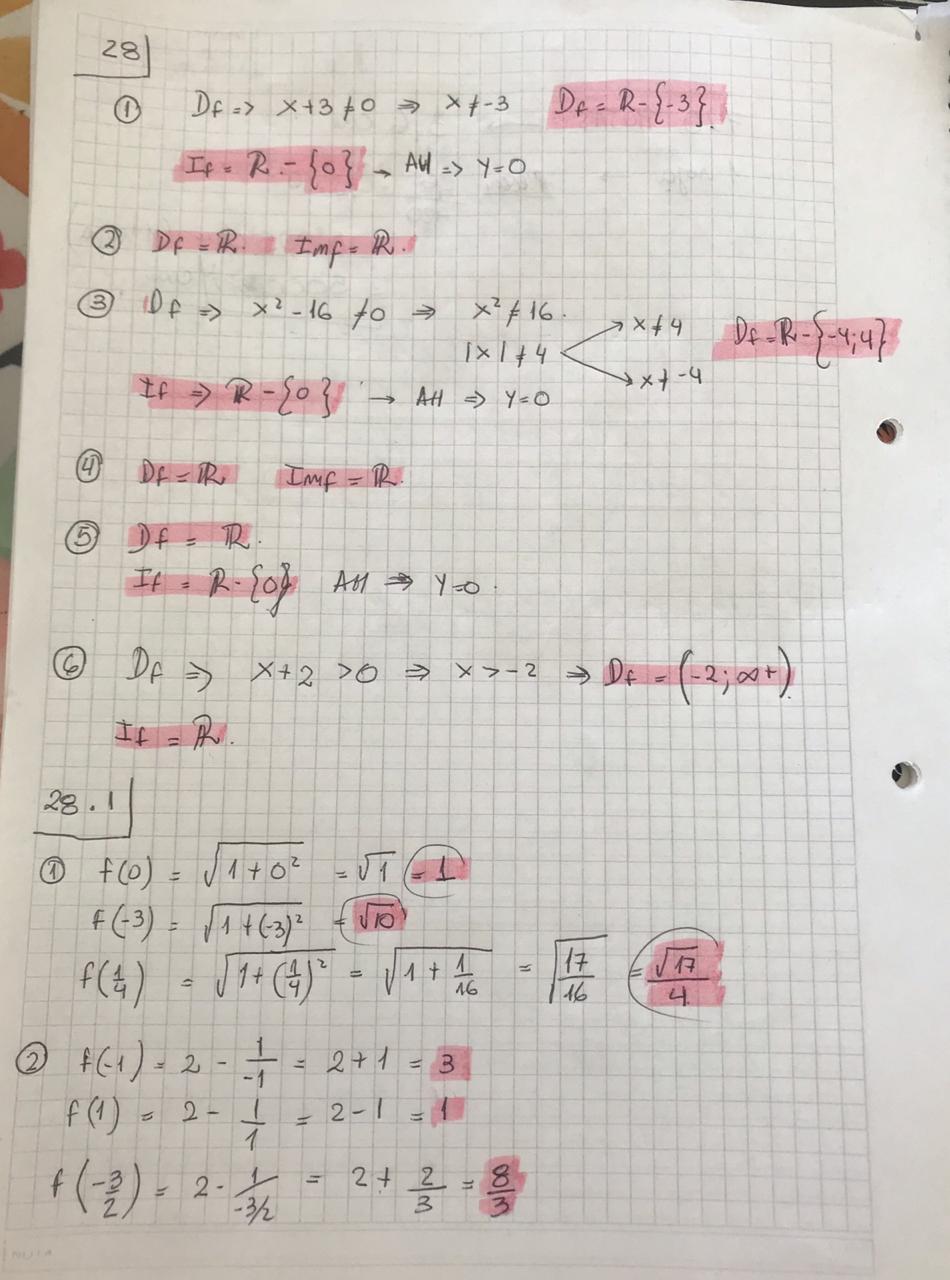 28
① Df ⇒ x+3 ≠ 0 ⇒ x ≠ -3 Df = ℝ - {-3}.
If = ℝ - {0} → AH ⇒ Y=0
② Df = ℝ. Imf = ℝ.
③ Df ⇒ x² - 16 ≠ 0 ⇒ x² ≠ 16.
|x| ≠ 4 x ≠ 4 x ≠ -4 Df = ℝ - {-4;4}
If ⇒ ℝ - {0} → AH ⇒ Y=0
④ Df = ℝ Imf = ℝ.
⑤ Df = ℝ.
If = ℝ - {0} AH ⇒ Y=0.
⑥ Df ⇒ x+2 > 0 ⇒ x > -2 ⇒ Df = (-2; ∞+).
If = ℝ.
28.1
① f(0) = √(1+0²) = √1 = 1
f(-3) = √(1+(-3)²) = √10
f(1/4) = √(1+(1/4)²) = √(1 + 1/16) = √(17/16) = √17/4
② f(-1) = 2 - 1/-1 = 2+1 = 3
f(1) = 2 - 1/1 = 2-1 = 1
f(-3/2) = 2 - 1/-3/2 = 2 + 2/3 = 8/3